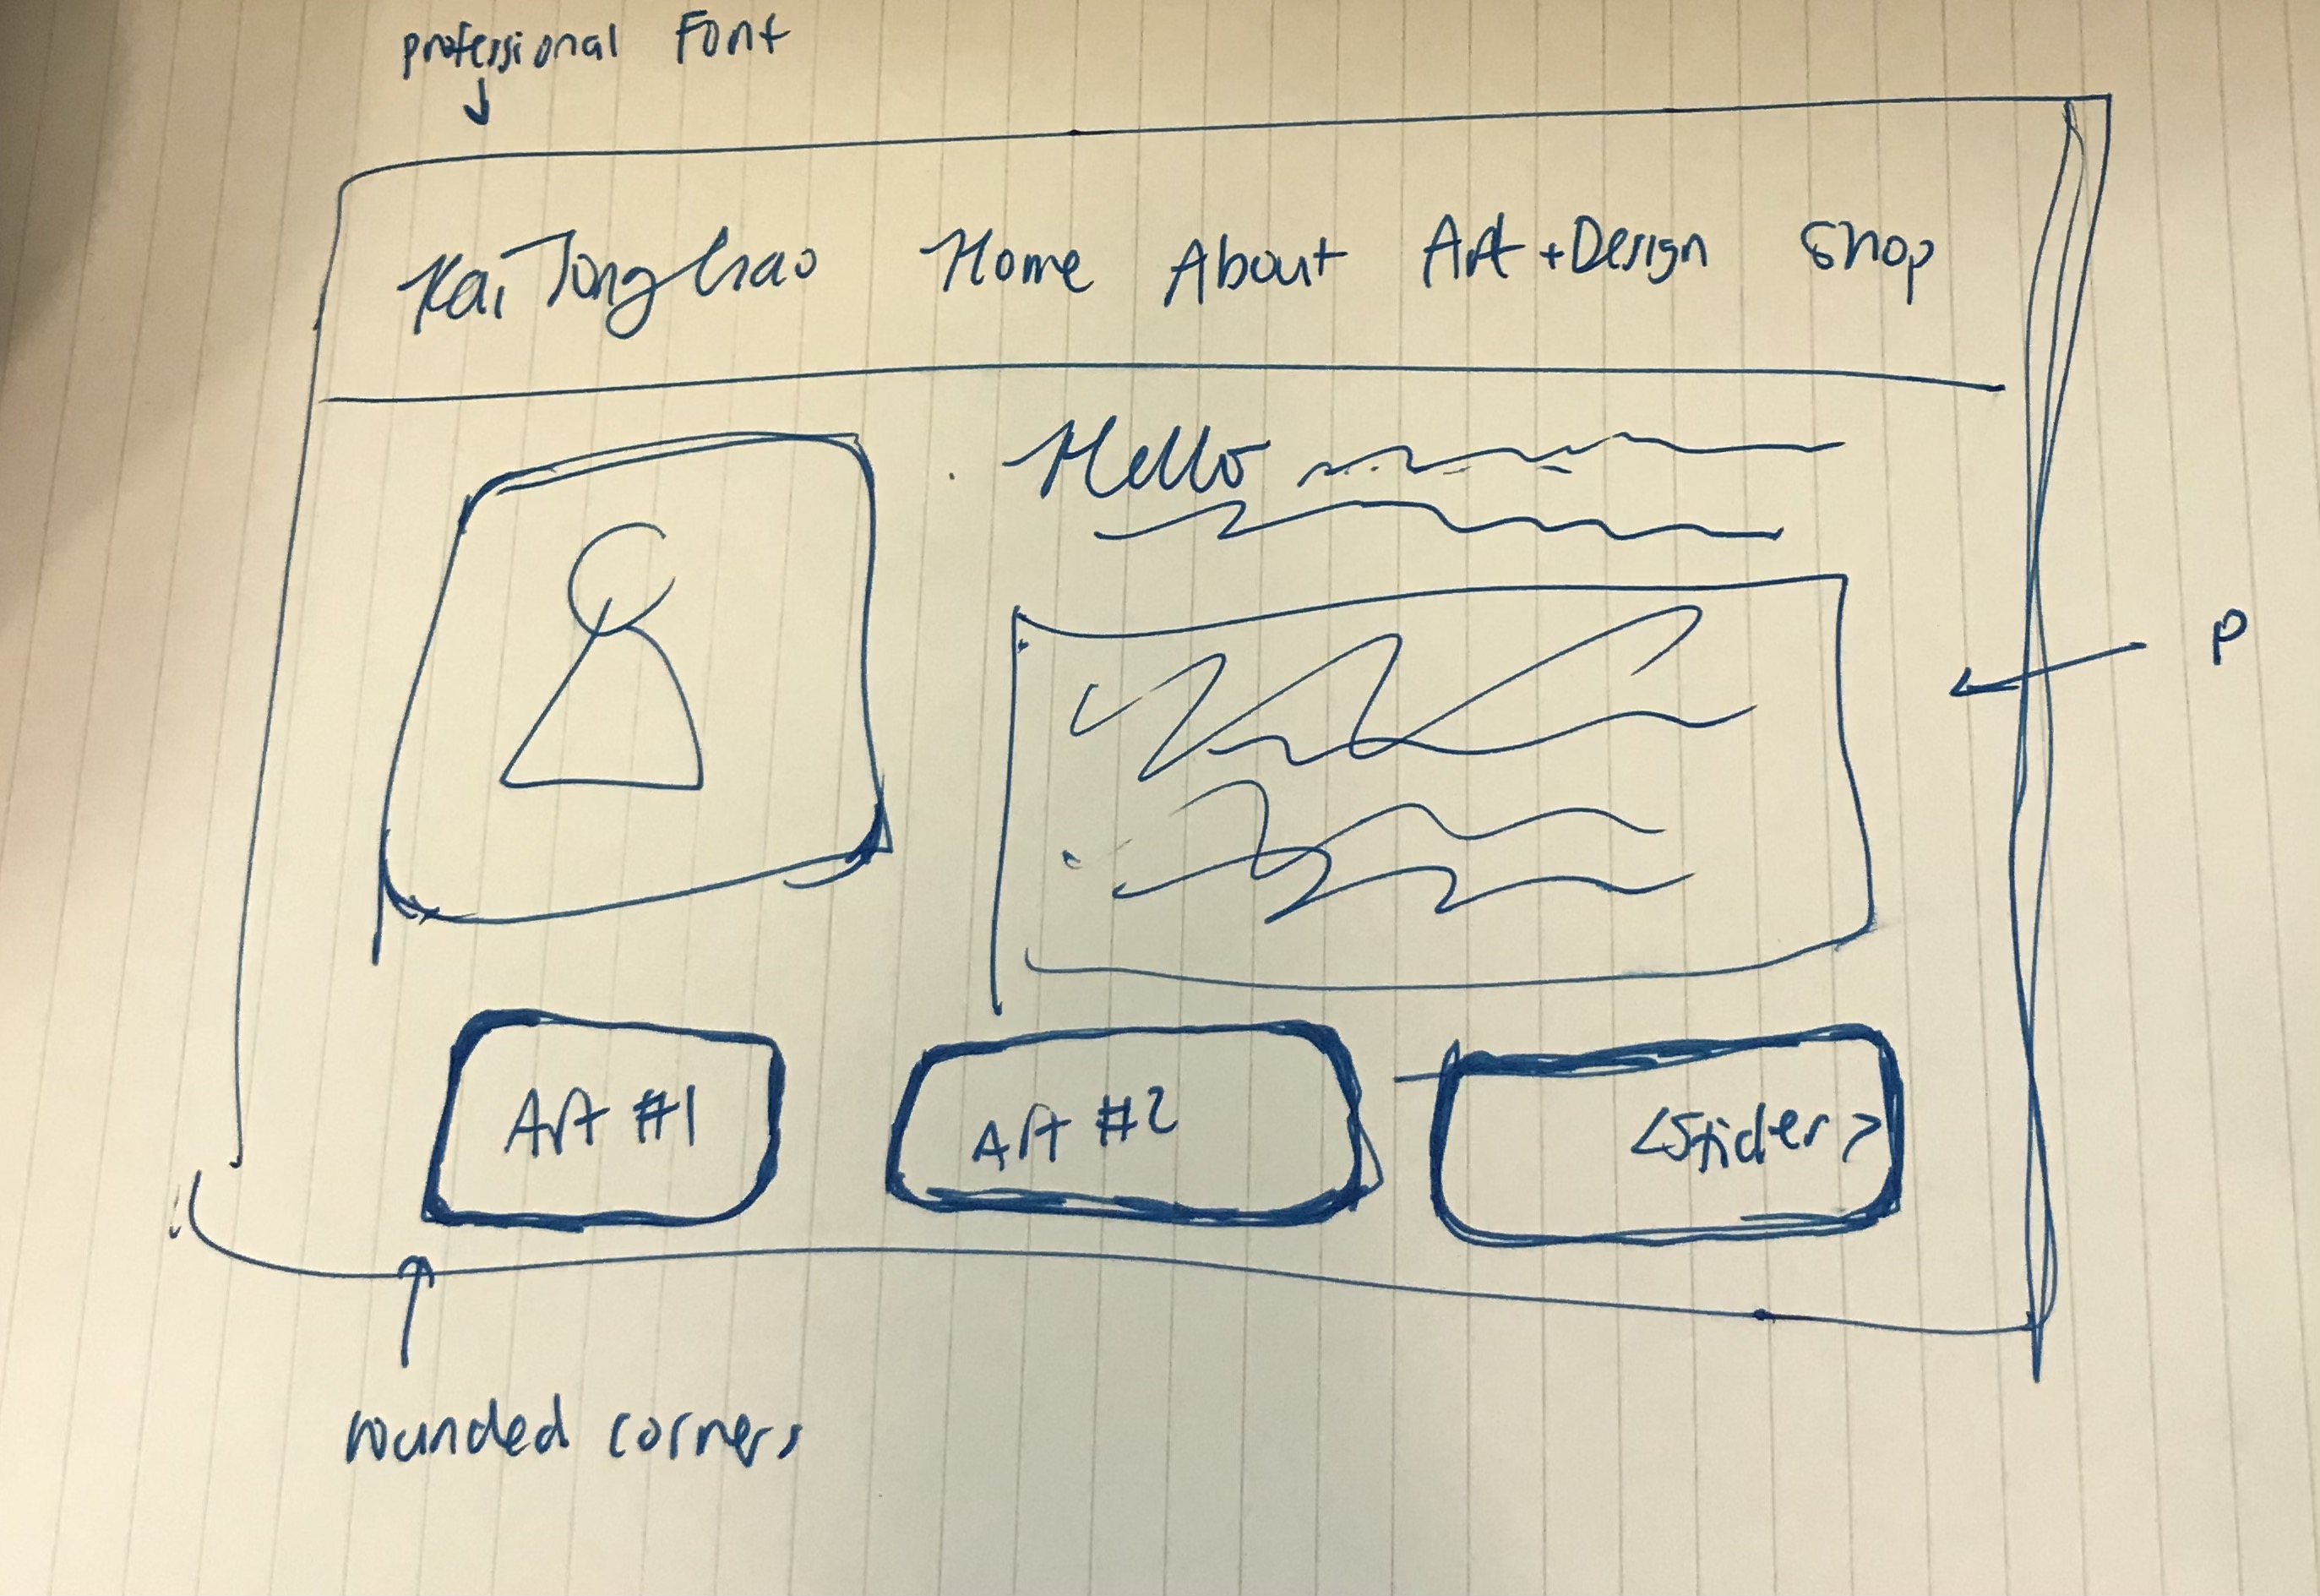 professional Font
Kai Tong Chao Home About Art + Design Shop
Hello
P
Art #1 Art #2 <Sticker>
rounded corners